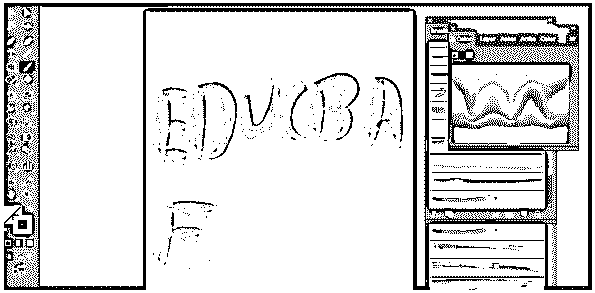 EDUCBA
F